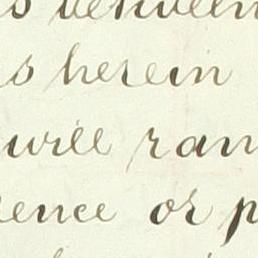 s between
s herein
will ran
ence or p